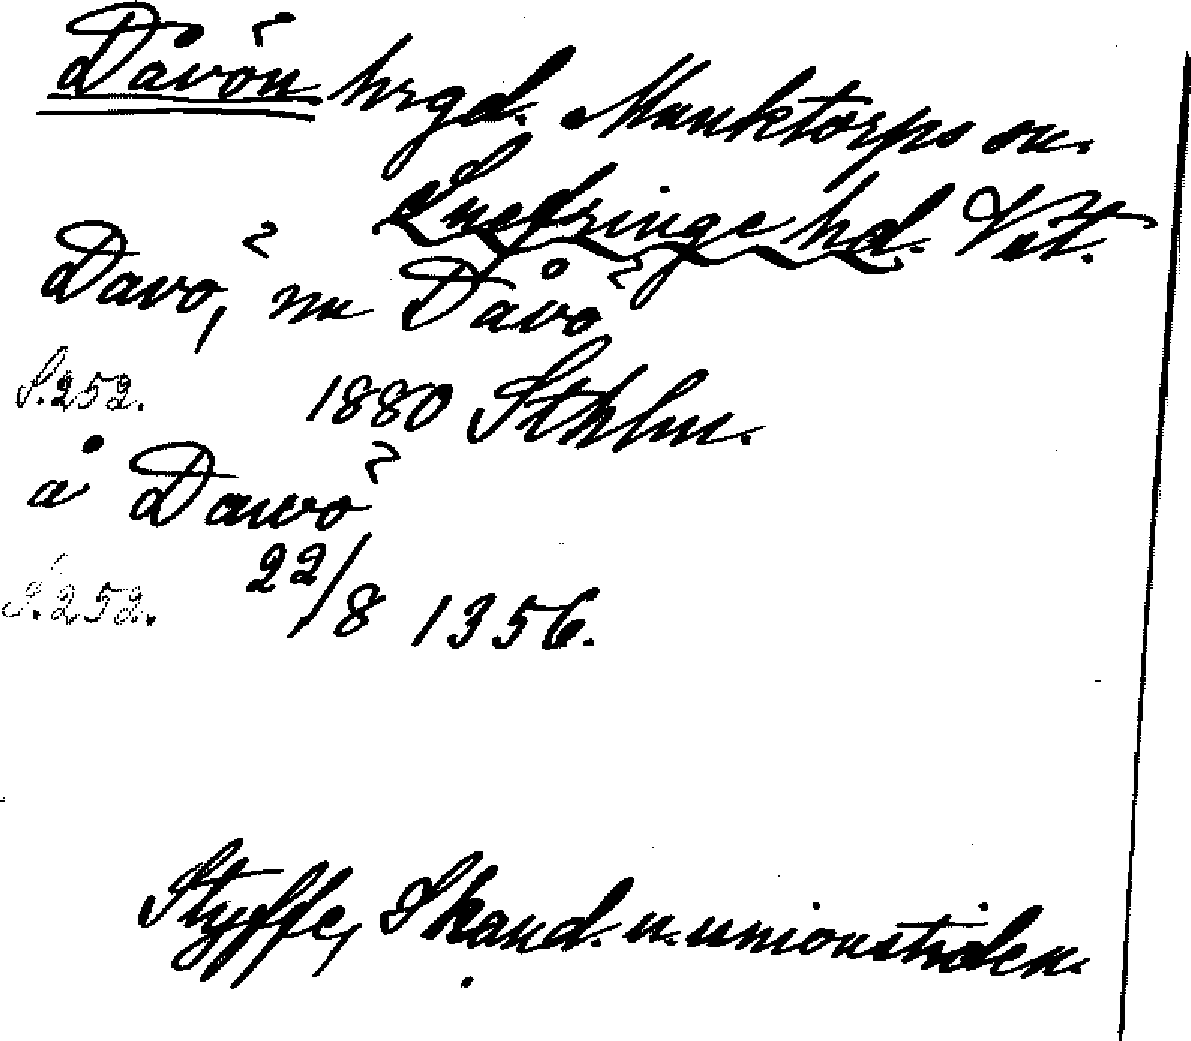 Dåvön hrgd. Munktorps sn.
Snefringe hd. Vstm.
Davö, nu Dåvö
S. 252. 1880 Sthlm.
å Dawö
S. 252. 22/8 1356.
Styffe, Skand. u. unionstiden.